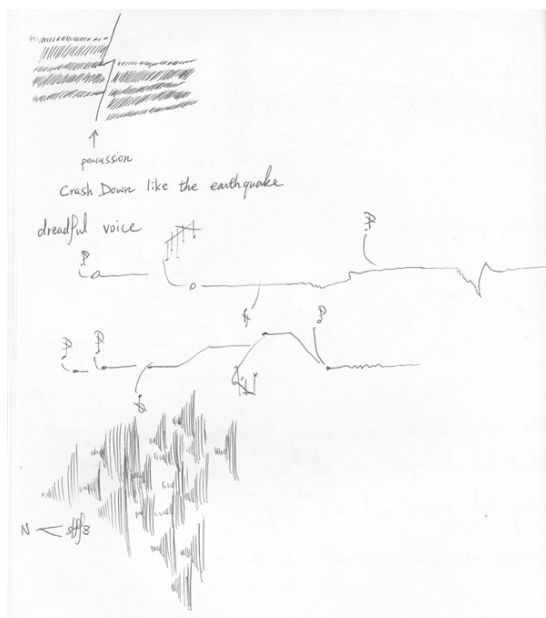 percussion
Crash Down like the earthquake
dreadful voice
P
P
P P P
N < sffz